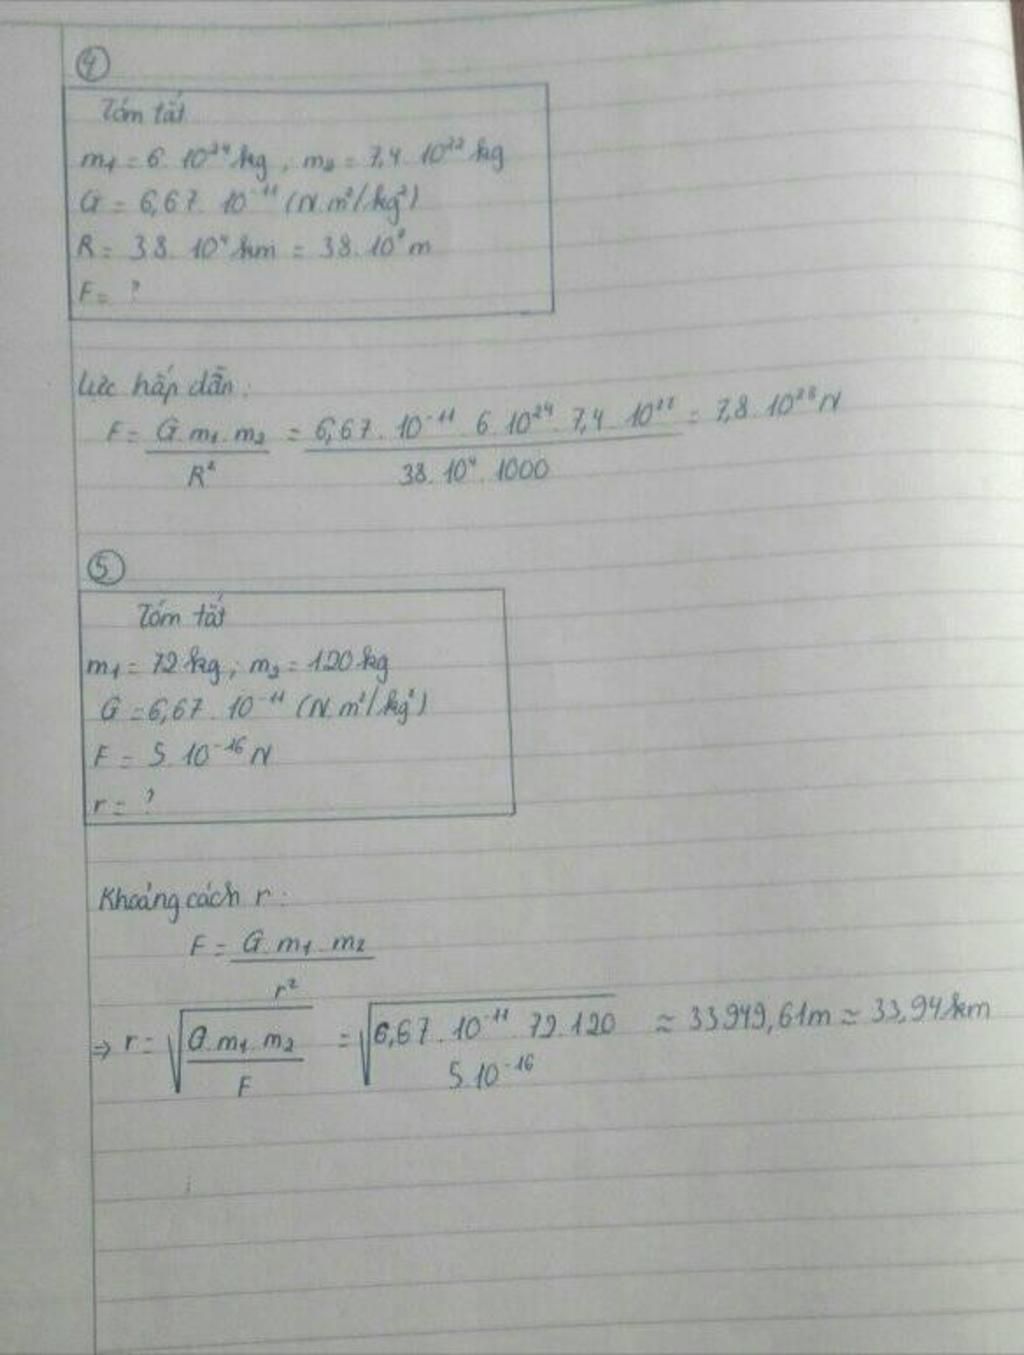 4
Tóm tắt
m₁ = 6. 10²⁴ kg, m₂ = 7,4. 10²² kg
G = 6,67. 10⁻¹¹ (N.m²/kg²)
R = 38. 10⁴ km = 38. 10⁷ m
F = ?
Lực hấp dẫn:
F = G.m₁.m₂ / R² = 6,67. 10⁻¹¹. 6. 10²⁴. 7,4. 10²² / 38. 10⁴. 1000 = 7,8. 10²⁸ N
5
Tóm tắt
m₁ = 72 kg; m₂ = 120 kg
G = 6,67. 10⁻¹¹ (N.m²/kg²)
F = 5. 10⁻¹⁶ N
r = ?
Khoảng cách r:
F = G.m₁.m₂ / r²
⇒ r = √(G.m₁.m₂ / F) = √(6,67. 10⁻¹¹. 72. 120 / 5. 10⁻¹⁶) ≈ 33949,61m ≈ 33,94km